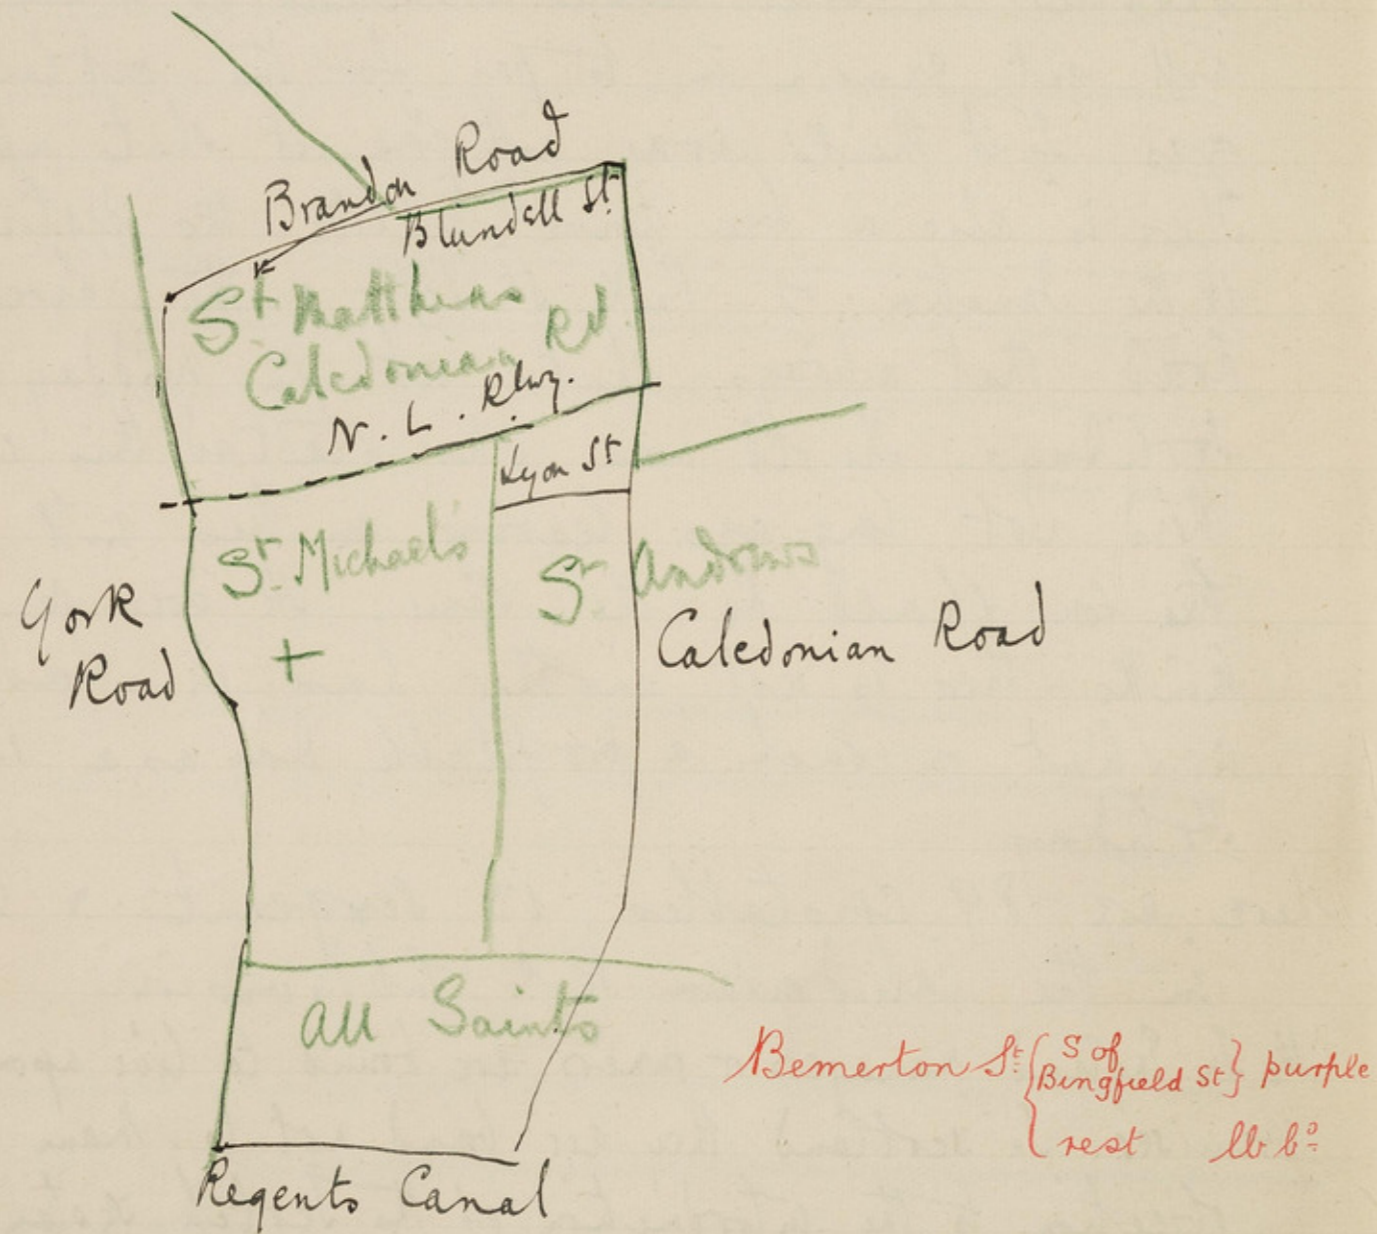 Brandon Road
Blundell St.
St Matthias
Caledonian Rd
N. L. Rlwy.
Lyon St
St. Michael's
St. Andrews
York
Road
Caledonian Road
All Saints
Regents Canal
Bemerton St: { S of Bingfield St } purple
rest lb bo